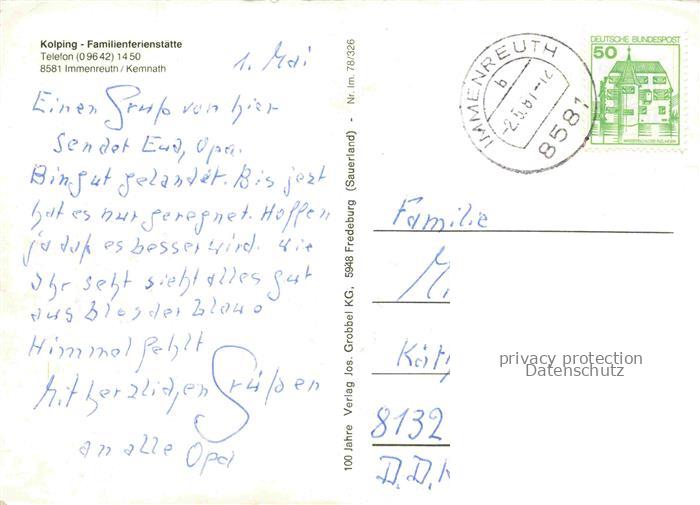 Kolping - Familienferienstätte
Telefon (0 96 42) 14 50
8581 Immenreuth / Kemnath
1. Mai
Einen Gruß von hier
sendet Euch, Opa.
Bin gut gelandet. Bis jezt
hat es nur geregnet. Hoffen
ja daß es besser wird. wie
Ihr seht sieht alles gut
aus blos der blaue
Himmel fehlt
Mit herzlichen Grüßen
an alle Opa
100 Jahre Verlag Jos. Grobbel KG, 5948 Fredeburg (Sauerland) - Nr. Im. 78/326
IMMENREUTH
b
-2.5.81-12
8581
DEUTSCHE BUNDESPOST
50
Familie
8132
privacy protection
Datenschutz